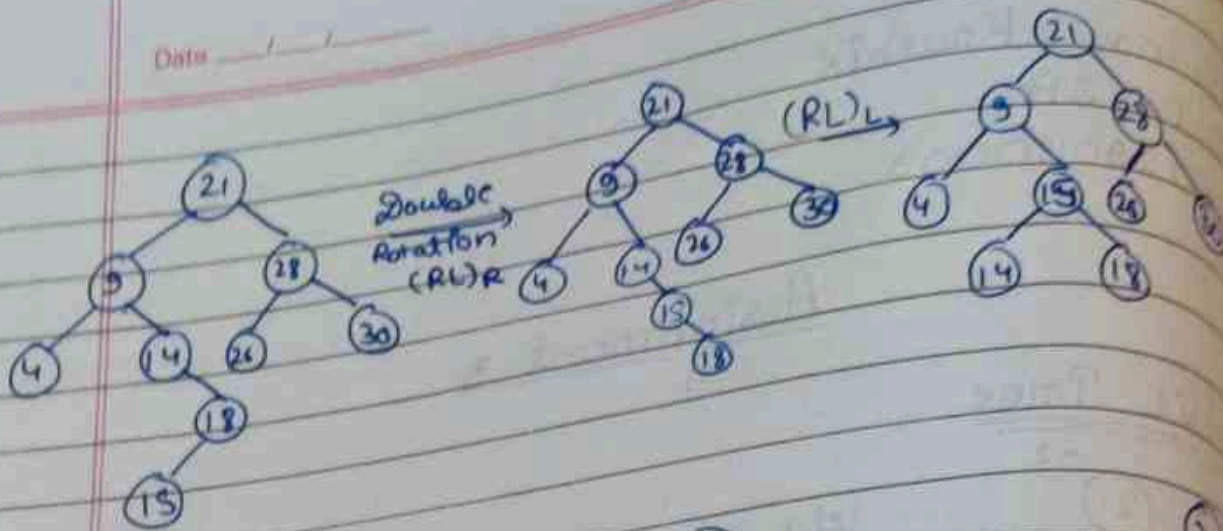 Date __/__/__
21
9 28
4 14 26 30
18
15
Double
Rotation
(RL)R
21
9 28
4 14 26 30
15
18
(RL)L
21
9 28
4 15
14 18